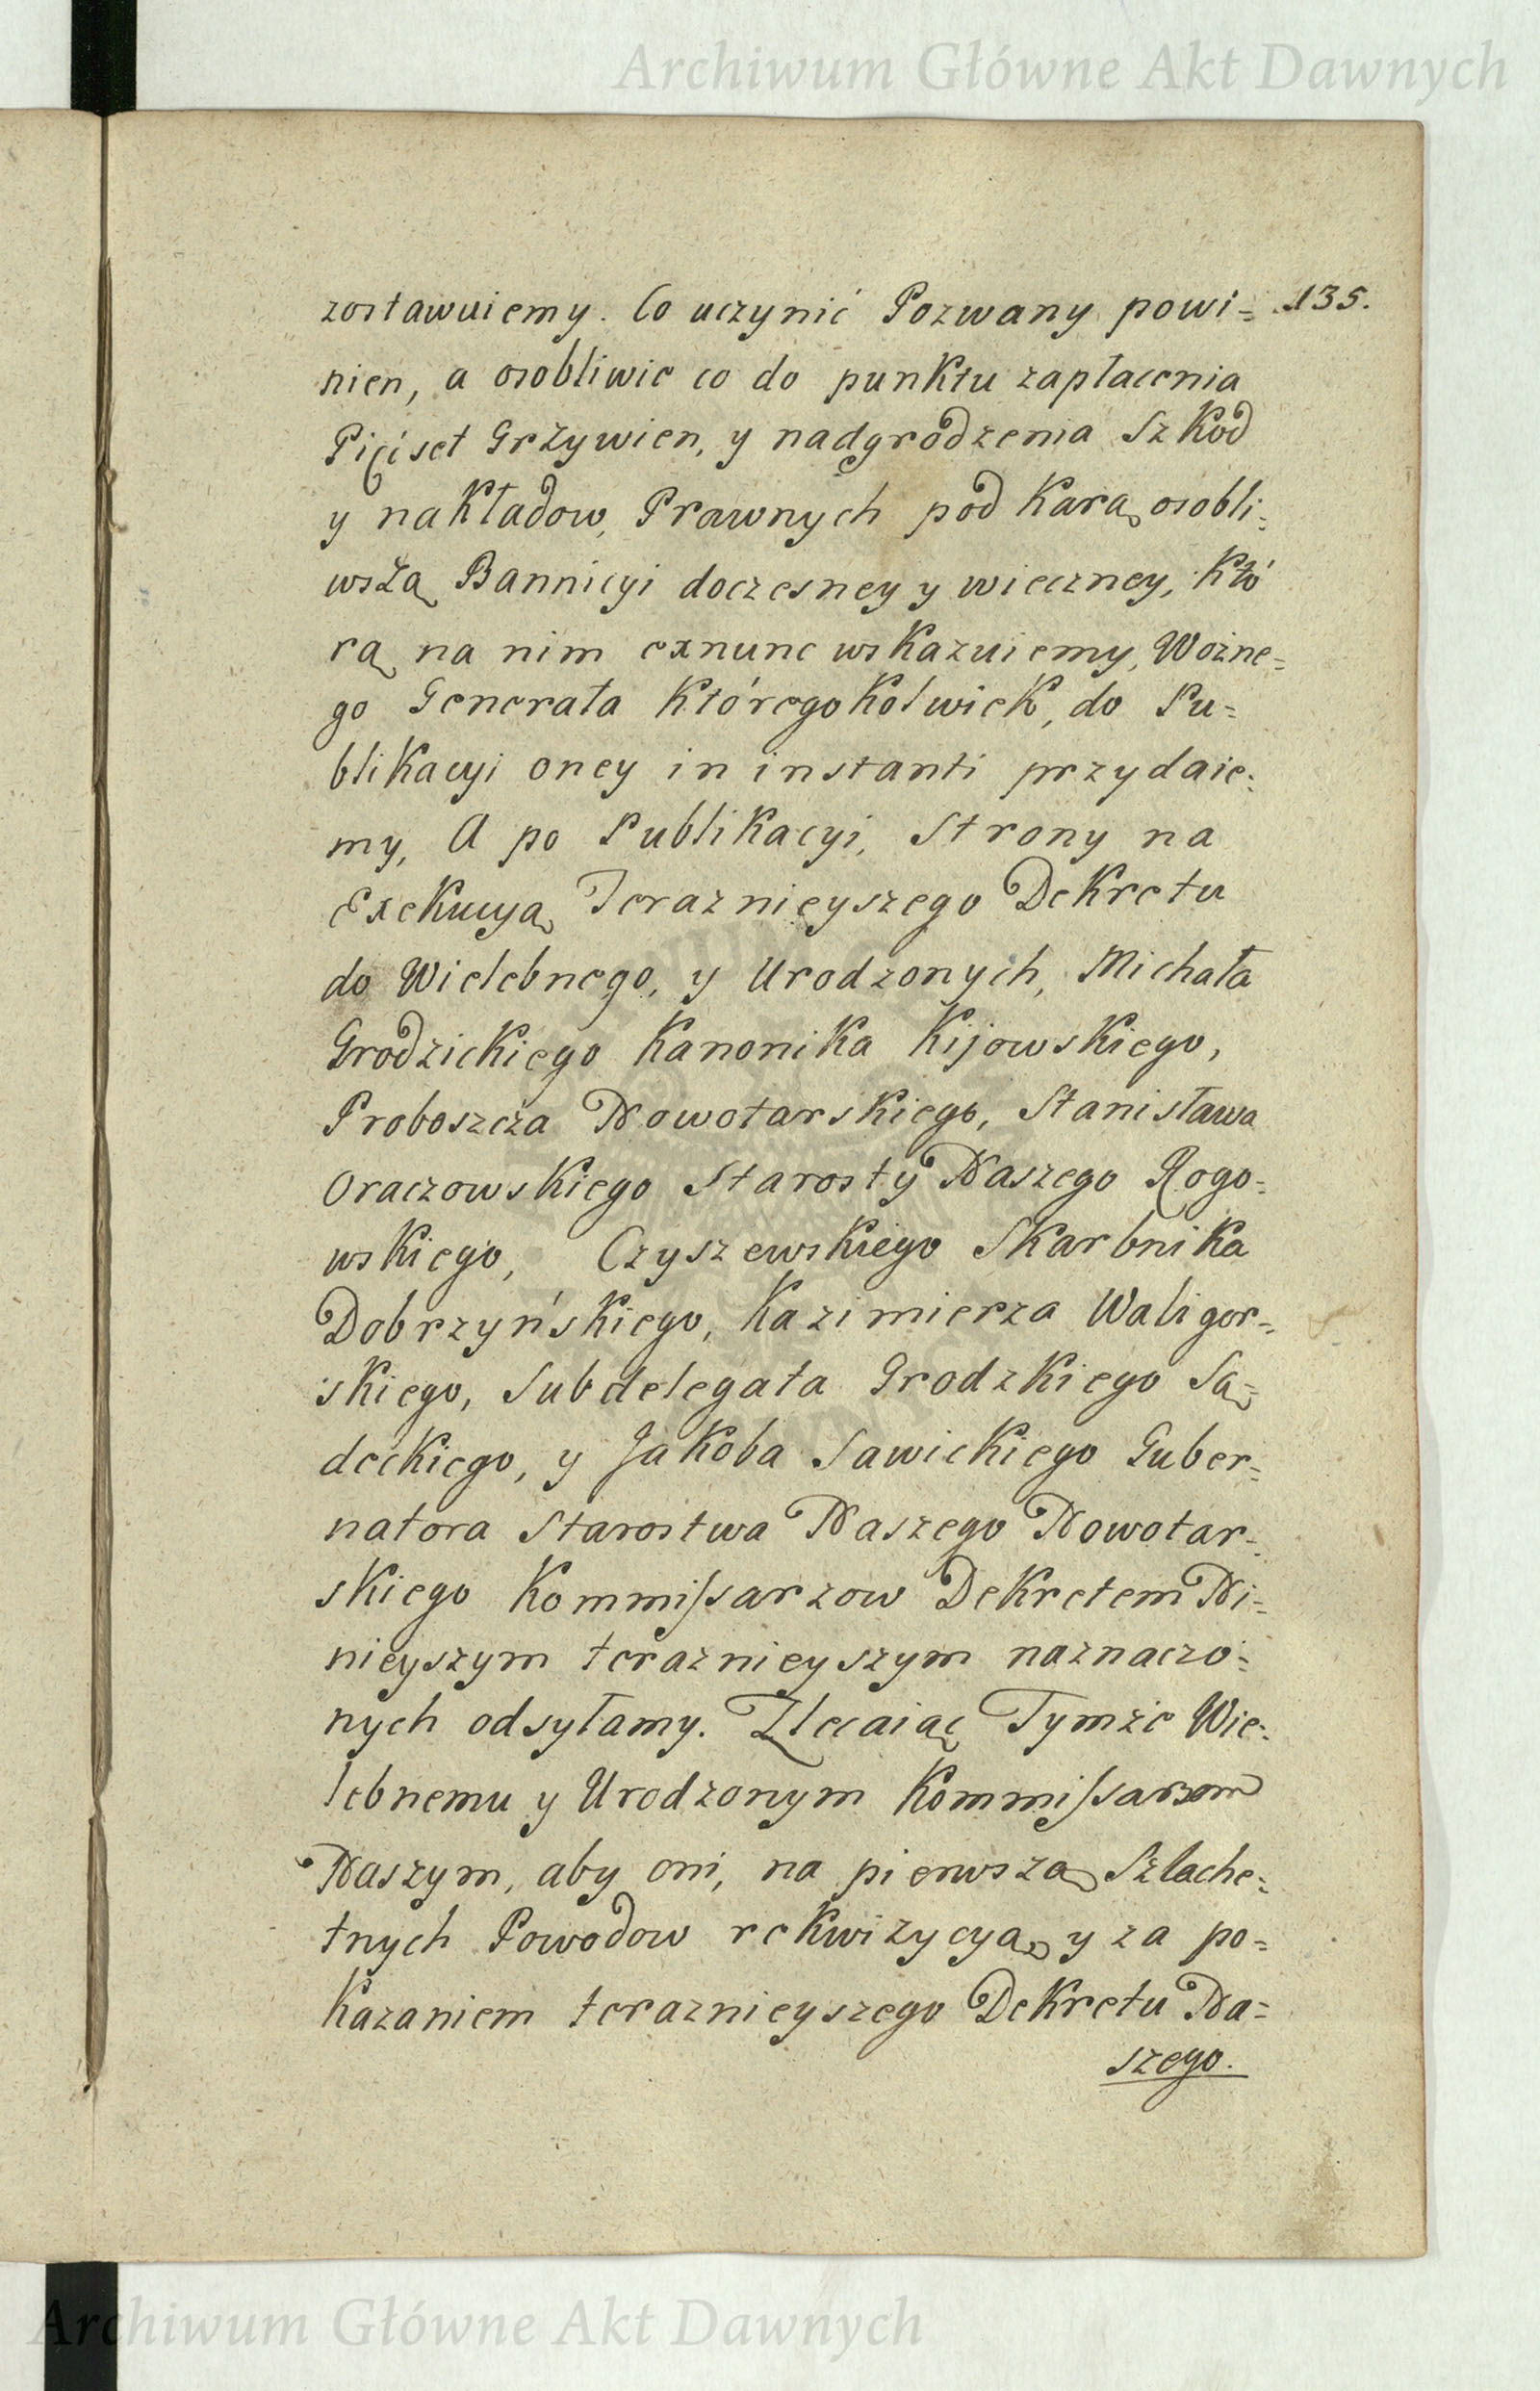 Archiwum Główne Akt Dawnych
zostawuiemy. Co uczynić Pozwany powi= 135.
nien, a osobliwie co do punktu zapłacenia
Pięciset Grzywien, y nadgrodzenia Szkod
y nakładow, Prawnych pod karą osobli=
wszą Bannicyi doczesney y wieczney, któ
rą na nim exnunc wskazuiemy, Wożne=
go Generała któregokolwiek, do Pu=
blikacyi oney in instanti przydaie=
my, A po Publikacyi, Strony na
Exekucyą Teraznieyszego Dekretu
do Wielebnego, y Urodzonych, Michała
Grodzickiego Kanonika Kijowskiego,
Proboszcza Nowotarskiego, Stanisława
Oraczowskiego Starosty Naszego Rogo=
wskiego, Czyszewskiego Skarbnika
Dobrzyńskiego, Kazimierza Waligor=
skiego, Subdelegata Grodzkiego Są=
deckiego, y Jakoba Sawickiego Guber=
natora Starostwa Naszego Nowotar=
skiego Kommissarzow Dekretem Ni=
nieyszym teraznieyszym naznaczo=
nych odsyłamy. Zlecaiąc Tymże Wie=
lebnemu y Urodzonym Kommissarzom
Naszym, aby oni, na pierwszą Szlache=
tnych Powodow rekwizycyą y za po=
kazaniem teraznieyszego Dekretu Na=
szego.
Archiwum Główne Akt Dawnych